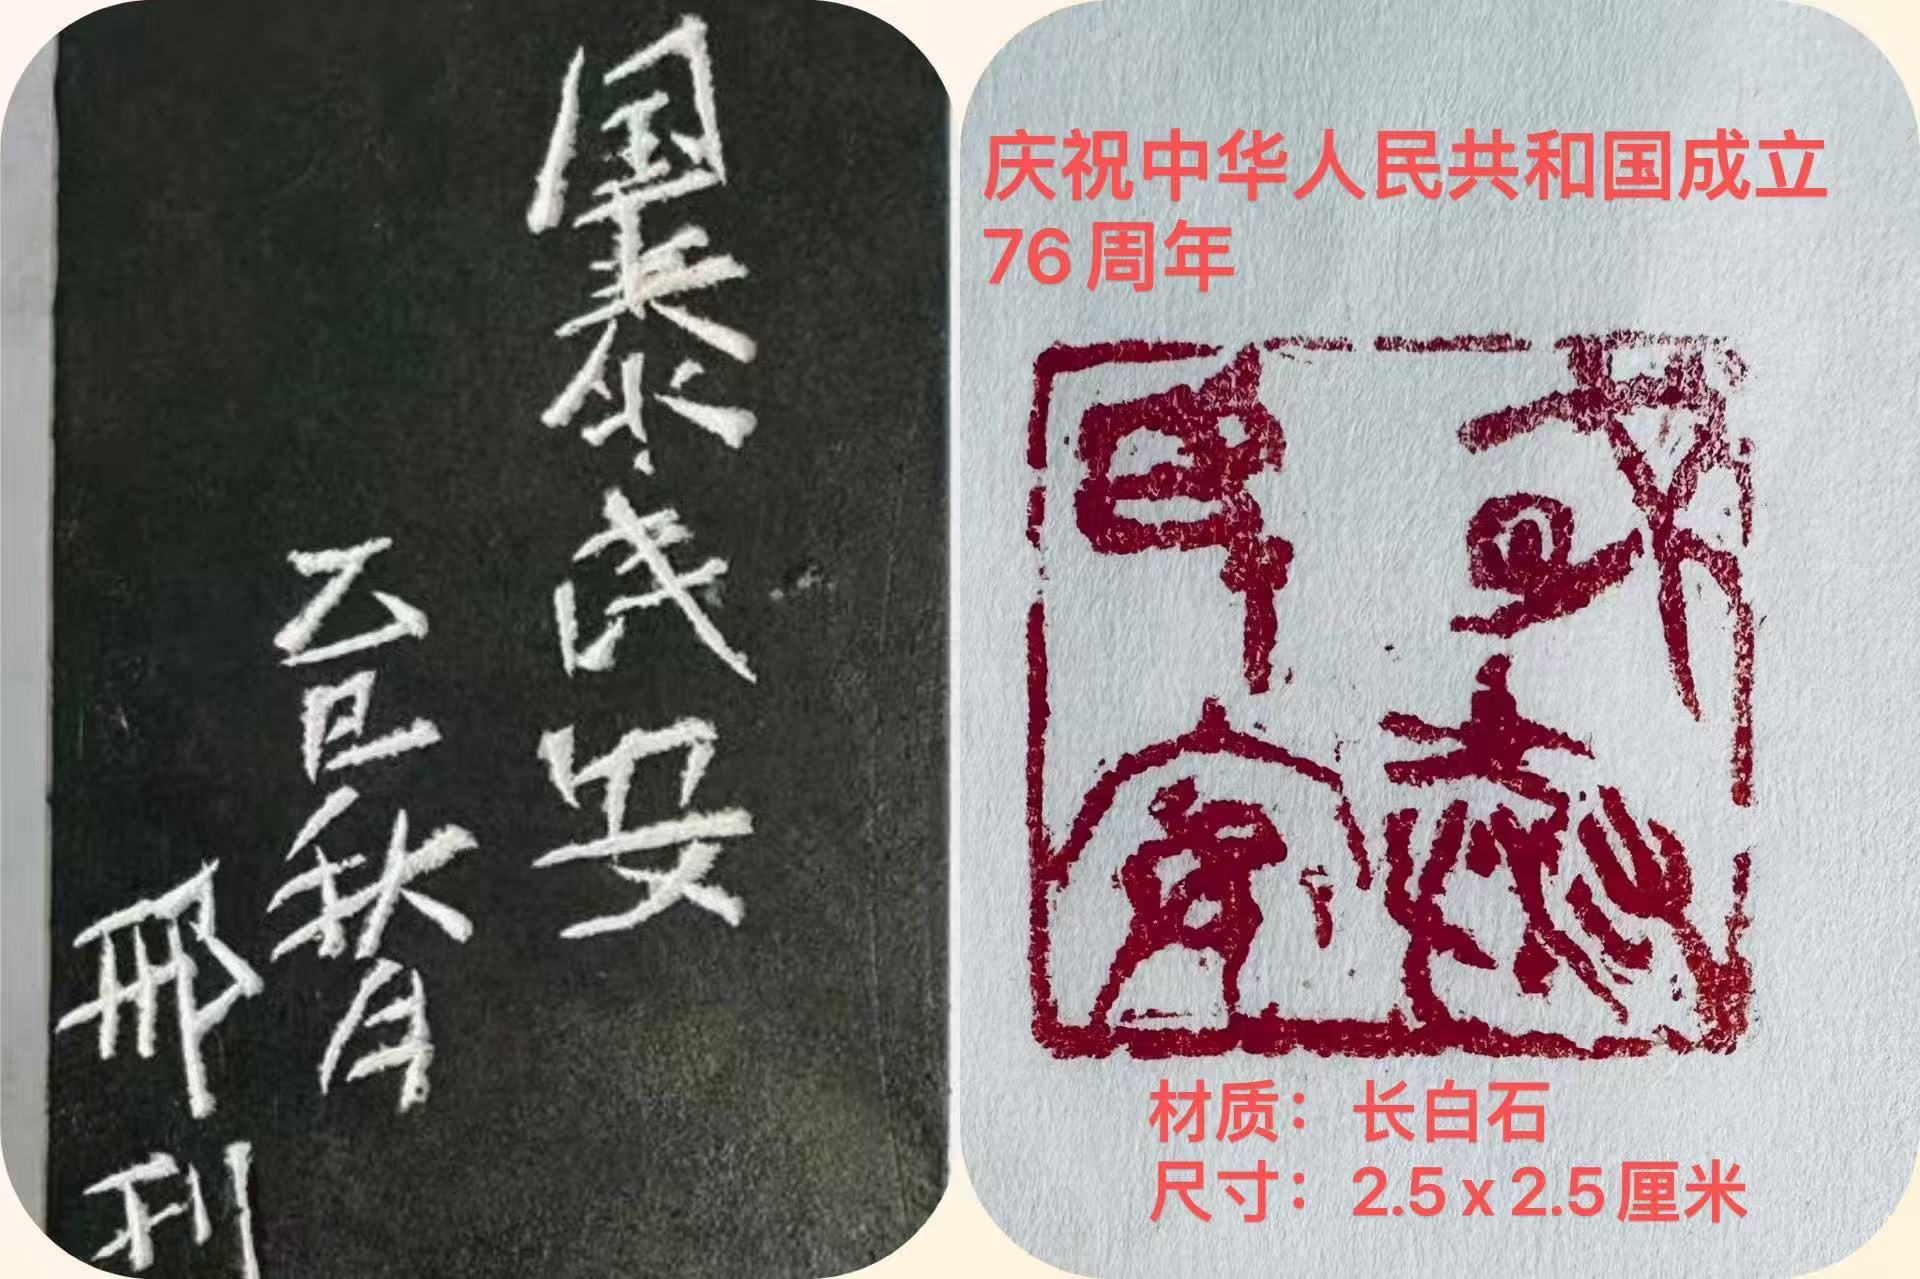 国泰民安
乙巳秋月
邢刊
庆祝中华人民共和国成立
76周年
或泰
民安
材质：长白石
尺寸：2.5 x 2.5厘米